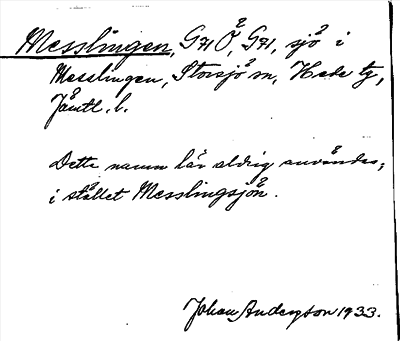 Messlingen, G41 Ö, G41, sjö i
Messlingen, Storsjö sn, Hede tg,
Jämtl. l.
Detta namn lär aldrig användas;
i stället Messlingsjön.
Johan Anderzson 1933.